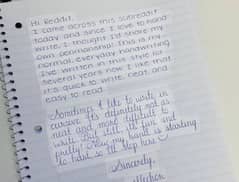 Hi Reddit,
I came across this subreddit
today and since I love to hand
write, I thought I'd share my
own penmanship! This is my
normal, everyday handwriting
I've written in this style for
several years now. I like that
it's quick to write, neat, and
easy to read.
Sometimes I like to write in
cursive. It's definitely not as
neat and more difficult to
write. But still, it's fun and
pretty! Now my hand is starting
to hurt so I'll stop here
Sincerely,